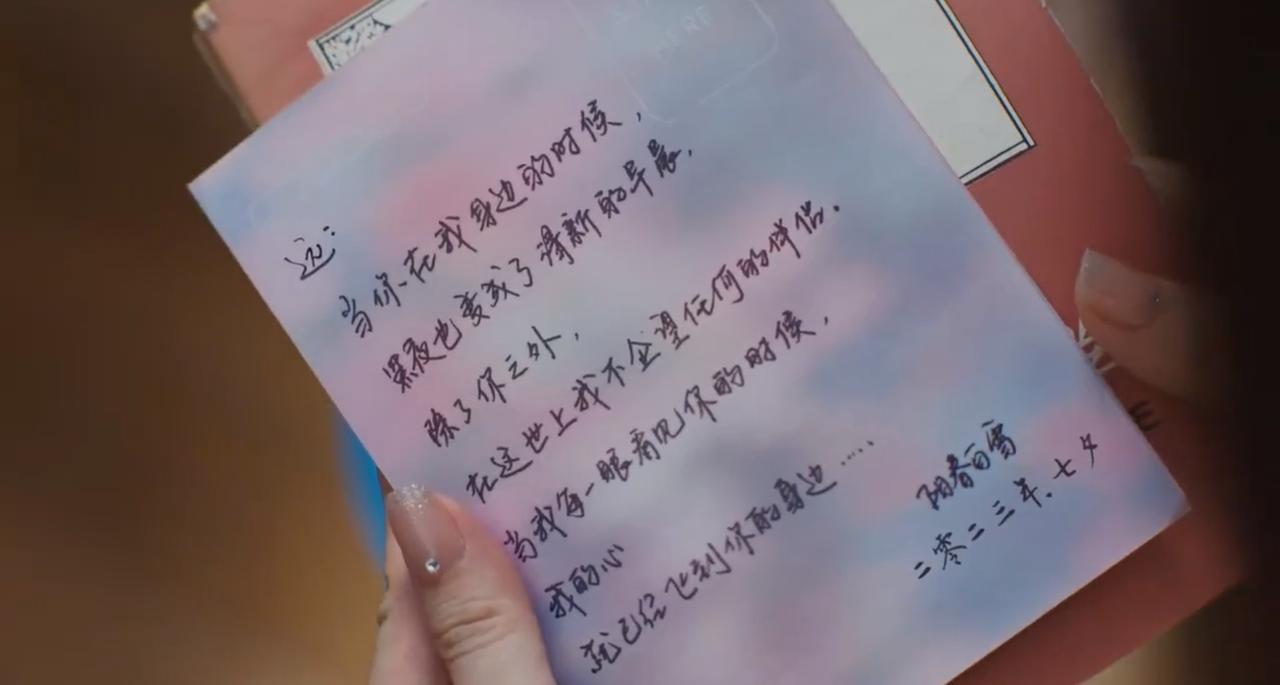 远：
当你在我身边的时候，
黑夜也变成了清新的早晨，
除了你之外，
在这世上我不企望任何的伴侣．
当我每一眼看见你的时候，
我的心
就已经飞到你的身边……
阳春白雪
二零二三年、七夕